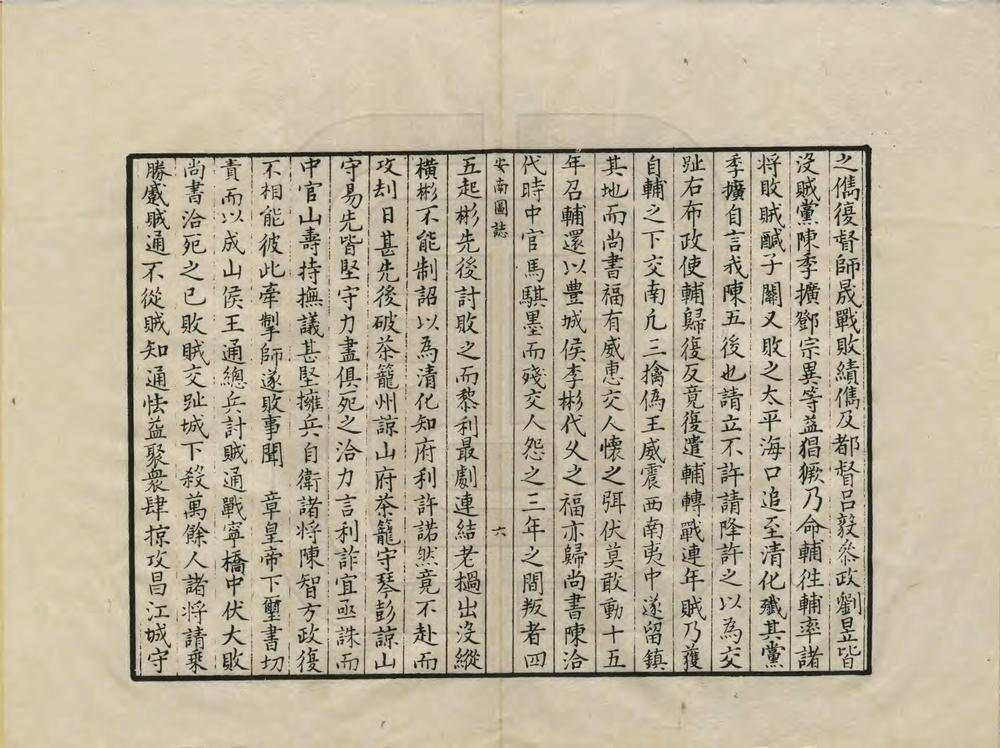 之儁復督師晟戰敗績儁及都督呂毅叅政劉昱皆
没賊黨陳季擴鄧宗異等益猖獗乃命輔徃輔率諸
将敗賊鹹子關又敗之太平海口追至清化殲其黨
季擴自言我陳五後也請立不許請降許之以為交
趾右布政使輔歸復反竟復遣輔轉戰連年賊乃獲
自輔之下交南凢三擒偽王威震西南夷中遂留鎮
其地而尚書福有威惠交人懷之弭伏莫敢動十五
年召輔還以豊城侯李彬代乂之福亦歸尚書陳洽
代時中官馬騏墨而殘交人怨之三年之間叛者四
安南圖誌
六
五起彬先後討敗之而黎利最劇連結老撾出没縱
橫彬不能制詔以為清化知府利許諾然竟不赴而
攻刦日甚先後破茶籠州諒山府茶籠守琴彭諒山
守易先皆堅守力盡俱死之洽力言利詐宜亟誅而
中官山壽持撫議甚堅擁兵自衛諸将陳智方政復
不相能彼此牽掣師遂敗事聞　章皇帝下璽書切
責而以成山侯王通總兵討賊通戰寧橋中伏大敗
尚書洽死之已敗賊交趾城下殺萬餘人諸将請乗
勝蹙賊通不從賊知通怯益聚衆肆掠攻昌江城守